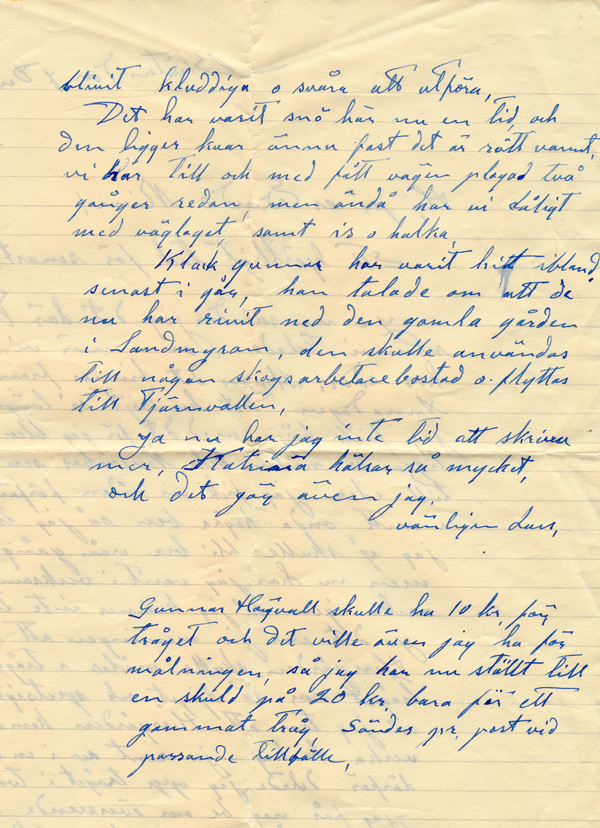 blivit kluddiga o svåra att utföra,
Det har varit snö här nu en tid, och
den ligger kvar ännu fast det är rätt varmt,
vi har till och med fått vägen plogad två
gånger redan, men ändå har vi dåligt
med väglaget, samt is o halka,
Klack gunnar har varit hitt ibland,
senast i går, han talade om att de
nu har rivit ned den gamla gården
i Sandmyran, den skulle användas
till någon skogsarbetarebostad o. flyttas
till Tjärnvallen,
Ja nu har jag inte tid att skriva
mer, Katrina hälsar så mycket,
och det gör även jag.
vänligen Lars,
Gunnar Högvall skulle ha 10 kr, för
tråget och det ville även jag ha för
målningen, så jag har nu ställt till
en skuld på 20 kr, bara för ett
gammat tråg, Sändes pr, post vid
passande tillfälle,